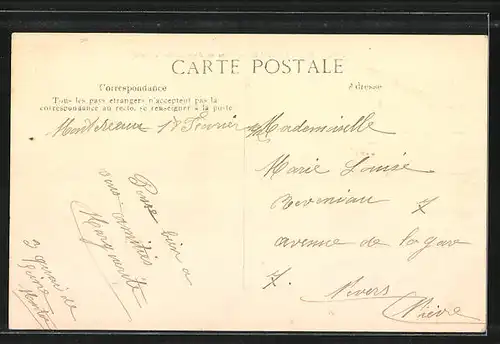 CARTE POSTALE
Correspondance
Tous les pays étrangers n'acceptent pas la
correspondance au recto, se renseigner à la poste
Adresse
Février
Mademoiselle
Marie Louise
7
avenue de la gare
7. Nevers
Nièvre
Pense bien a
amitiés
Marguerite
3 quai de
Seine